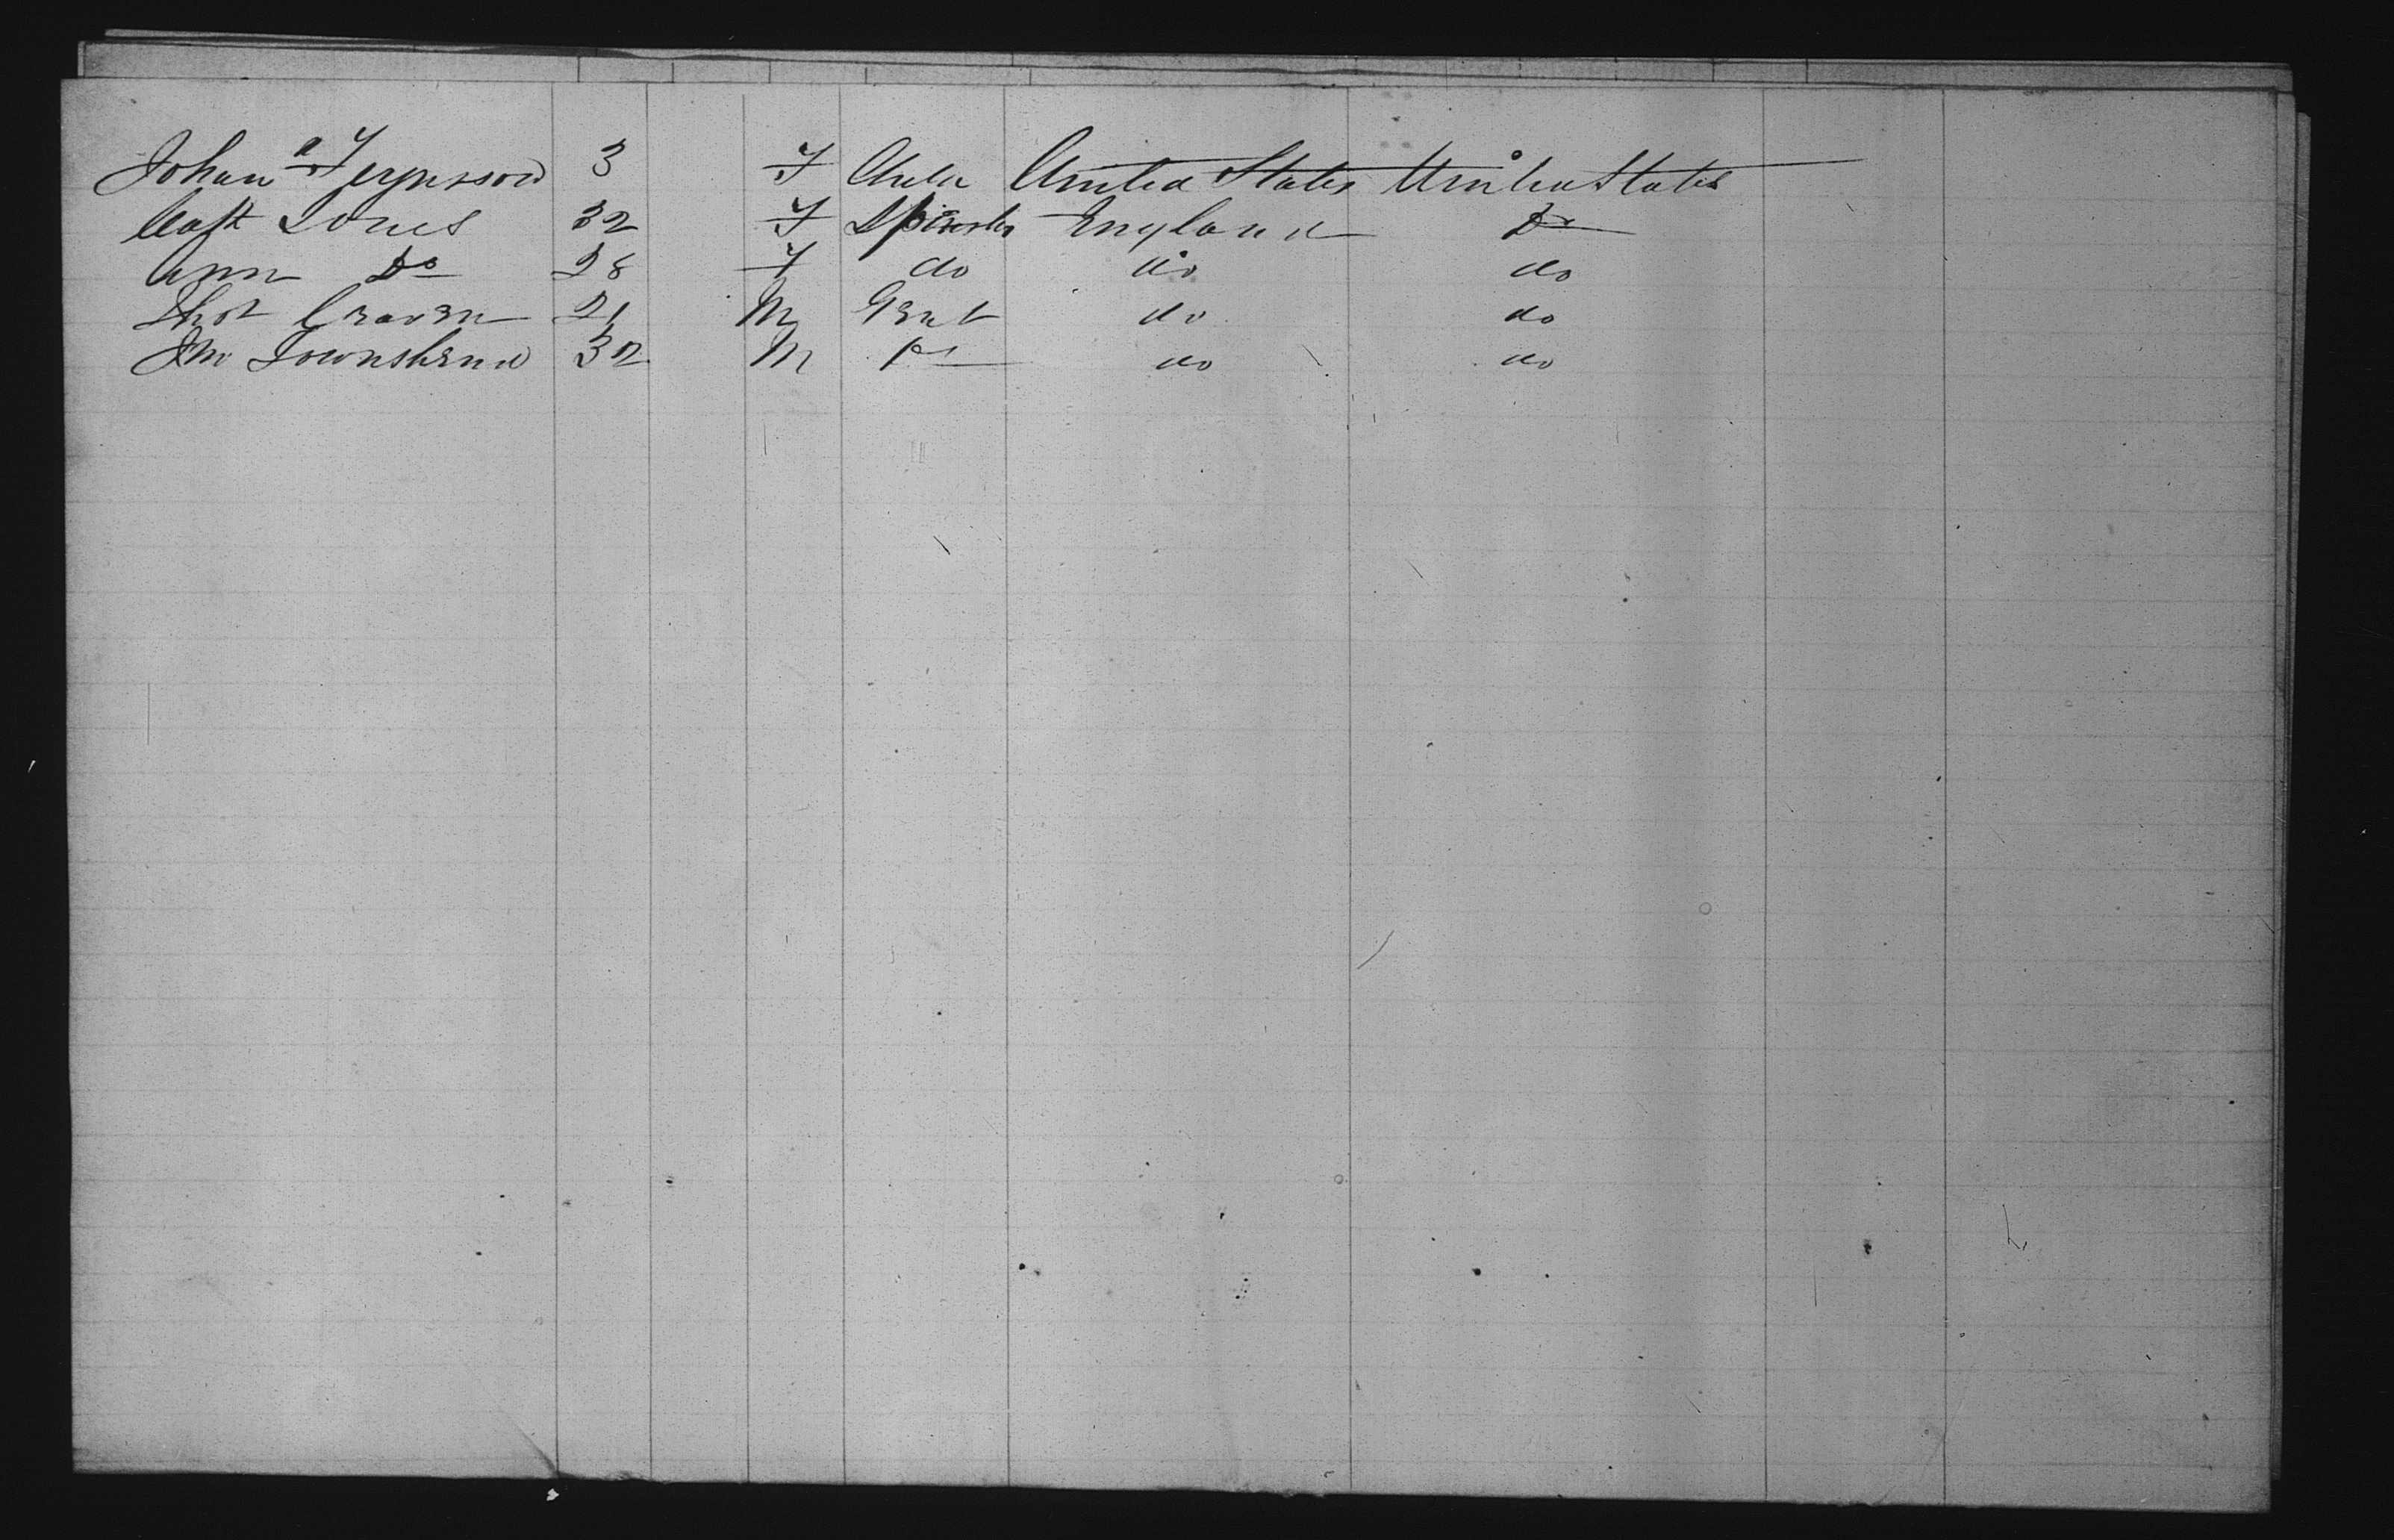 Johan a Fergusson 3 F Child United States United States
Cath Jones 32 F Spinster England Do
Ann Do 28 F do do do
Thos Craven 21 M Gent do do
Jno Townshend 32 M do do